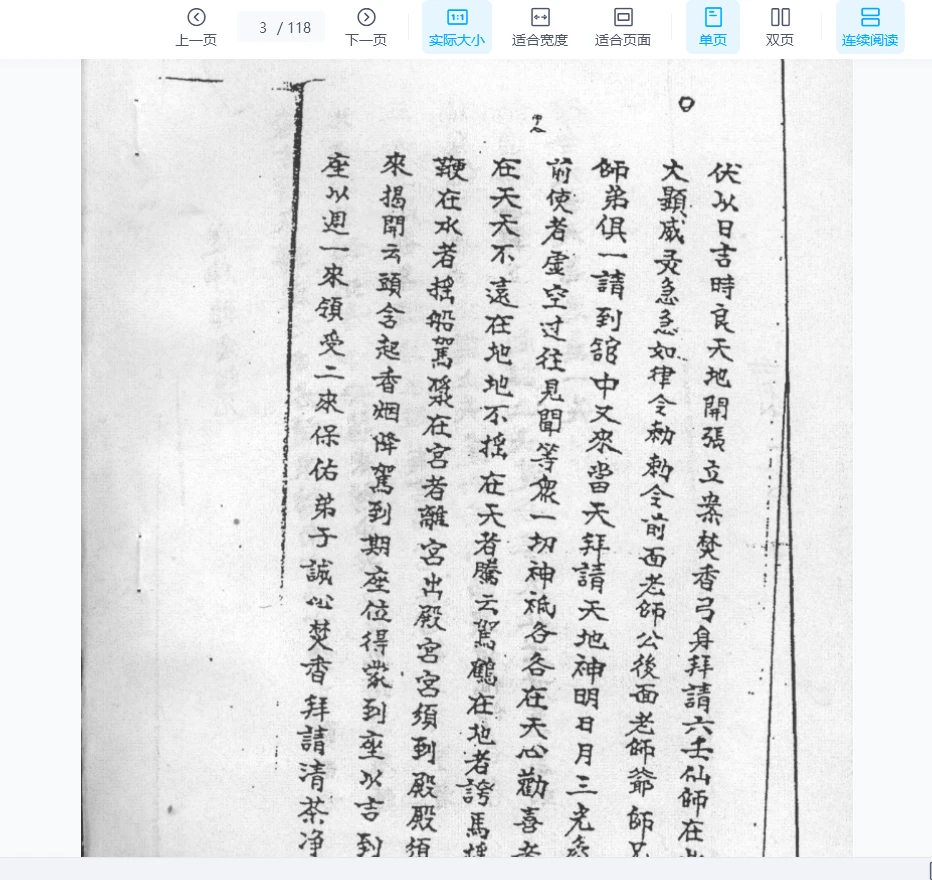 上一页
3 / 118
下一页
1:1
实际大小
适合宽度
适合页面
单页
双页
连续阅读
伏以日吉時良天地開張立案焚香弓身拜請六壬仙師在
大顯威灵急急如律令勅勅令前面老師公後面老師爺師兄
師弟俱一請到舘中又來當天拜請天地神明日月三光
前使者虚空过往見聞等衆一切神祇各各在天心勸喜者
在天天不遠在地地不搖在天者騰云駕鶴在地者誇馬搖
鞭在水者搖船駕槳在宮者離宮出殿宮宮須到殿殿須
來揭開云頭含起香烟降駕到期座位得蒙到座以吉到
座以週一來領受二來保佑弟子誠心焚香拜請清茶净